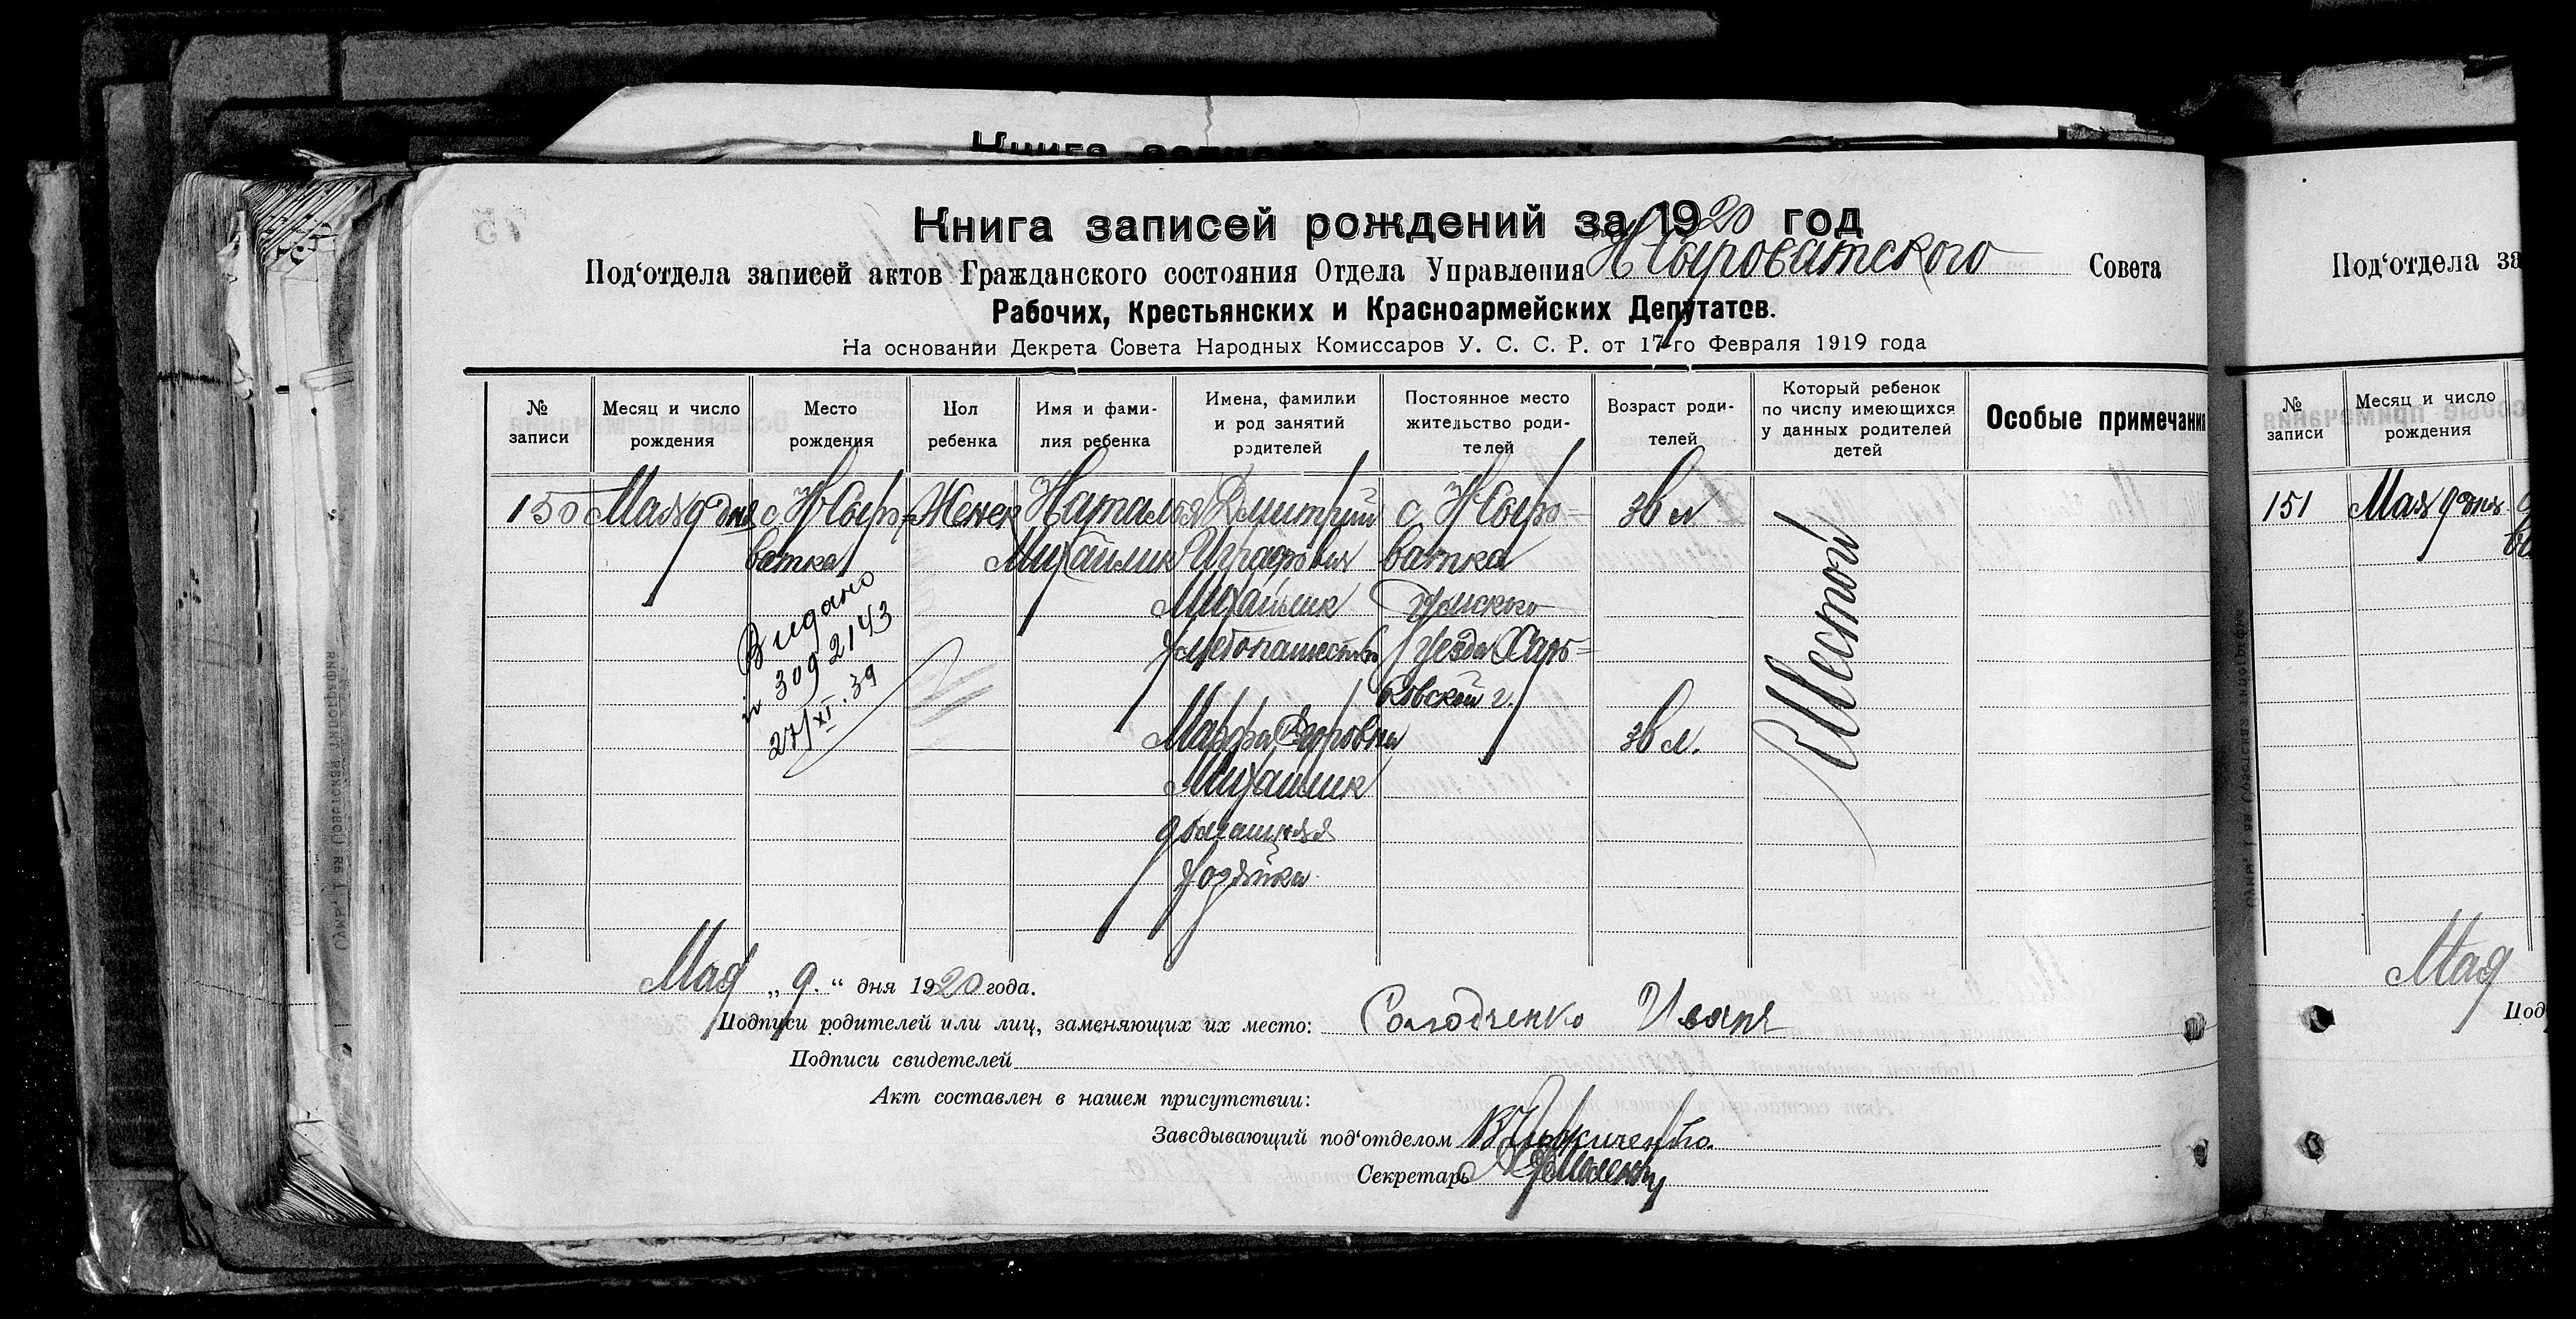 Книга записей рождений за 1920 год
Под‘отдела записей актов Гражданского состояния Отдела Управления Н Сыроватского Совета
Рабочих, Крестьянских и Красноармейских Депутатов.
На основании Декрета Совета Народных Комиссаров У. С. С. Р. от 17-го Февраля 1919 года
№ записи
Месяц и число рождения
Место рождения
Пол ребенка
Имя и фамилия ребенка
Имена, фамилии и род занятий родителей
Постоянное место жительство родителей
Возраст родителей
Который ребенок по числу имеющихся у данных родителей детей
Особые примечани
150
Мая 9 дня
с Н Сыро-
ватка
Женск
Наталья
Михайлик
Дмитрий
Михайлик
хлебопашество
Марфа
Михайлик
домашняя
хозяйка
с Н Сыро-
ватка
Сумского
уезда Харь-
ковской г.
36 л
36 л.
Шестой
Видано
309 2143
27/XI.39
Мая „ 9. “ дня 1920 года.
Подписи родителей или лиц, заменяющих их место: Солодченко Иван
Подписи свидетелей
Акт составлен в нашем присутствии:
Заведывающий под‘отделом
Секретарь
Под‘отдела за
№ записи
Месяц и число рождения
151
Мая 9 дня
Мая
Под